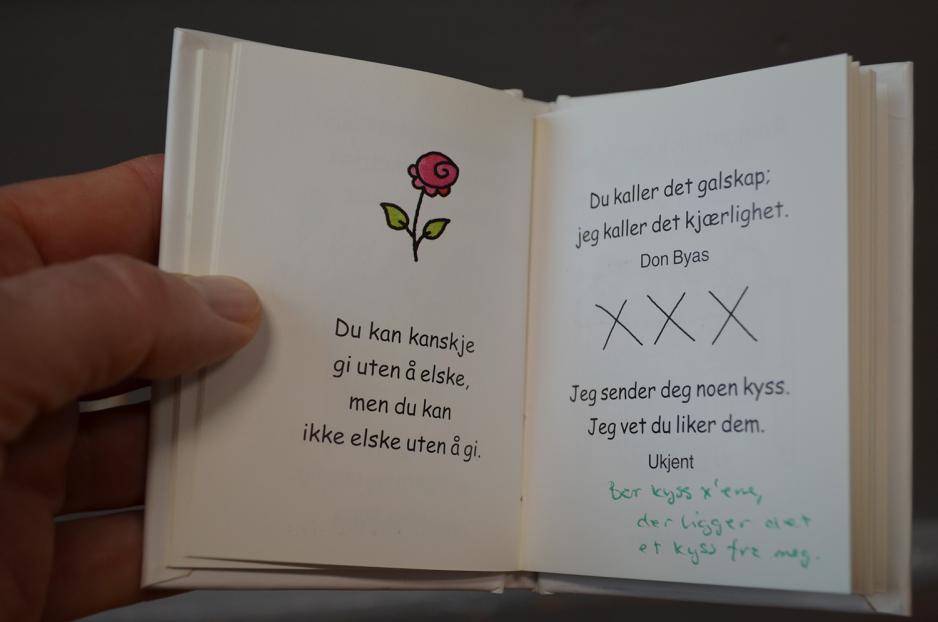 Du kan kanskje
gi uten å elske,
men du kan
ikke elske uten å gi.
Du kaller det galskap;
jeg kaller det kjærlighet.
Don Byas
X X X
Jeg sender deg noen kyss.
Jeg vet du liker dem.
Ukjent
Bar kyss x'ene,
der ligger det
et kyss fra meg.